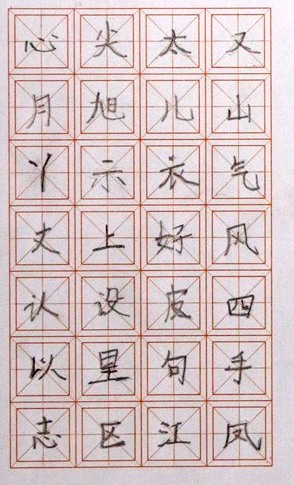 心尖太又
月旭儿山
丫示衣气
丈上好风
认设皮四
以里句手
志区江凤